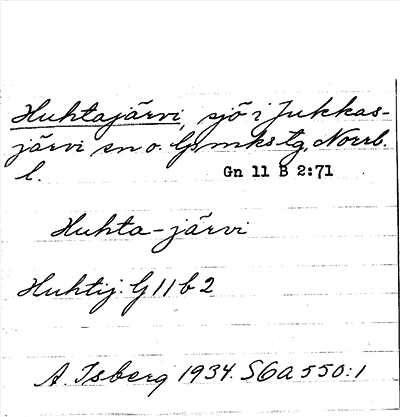 Huhtajärvi, sjö i Jukkas-
järvi sn o. Gmkstg, Norrb.
l. Gn 11 B 2:71
Huhta-järvi
Huhtij. G 11 b 2
A. Isberg 1934. S6a 550:1